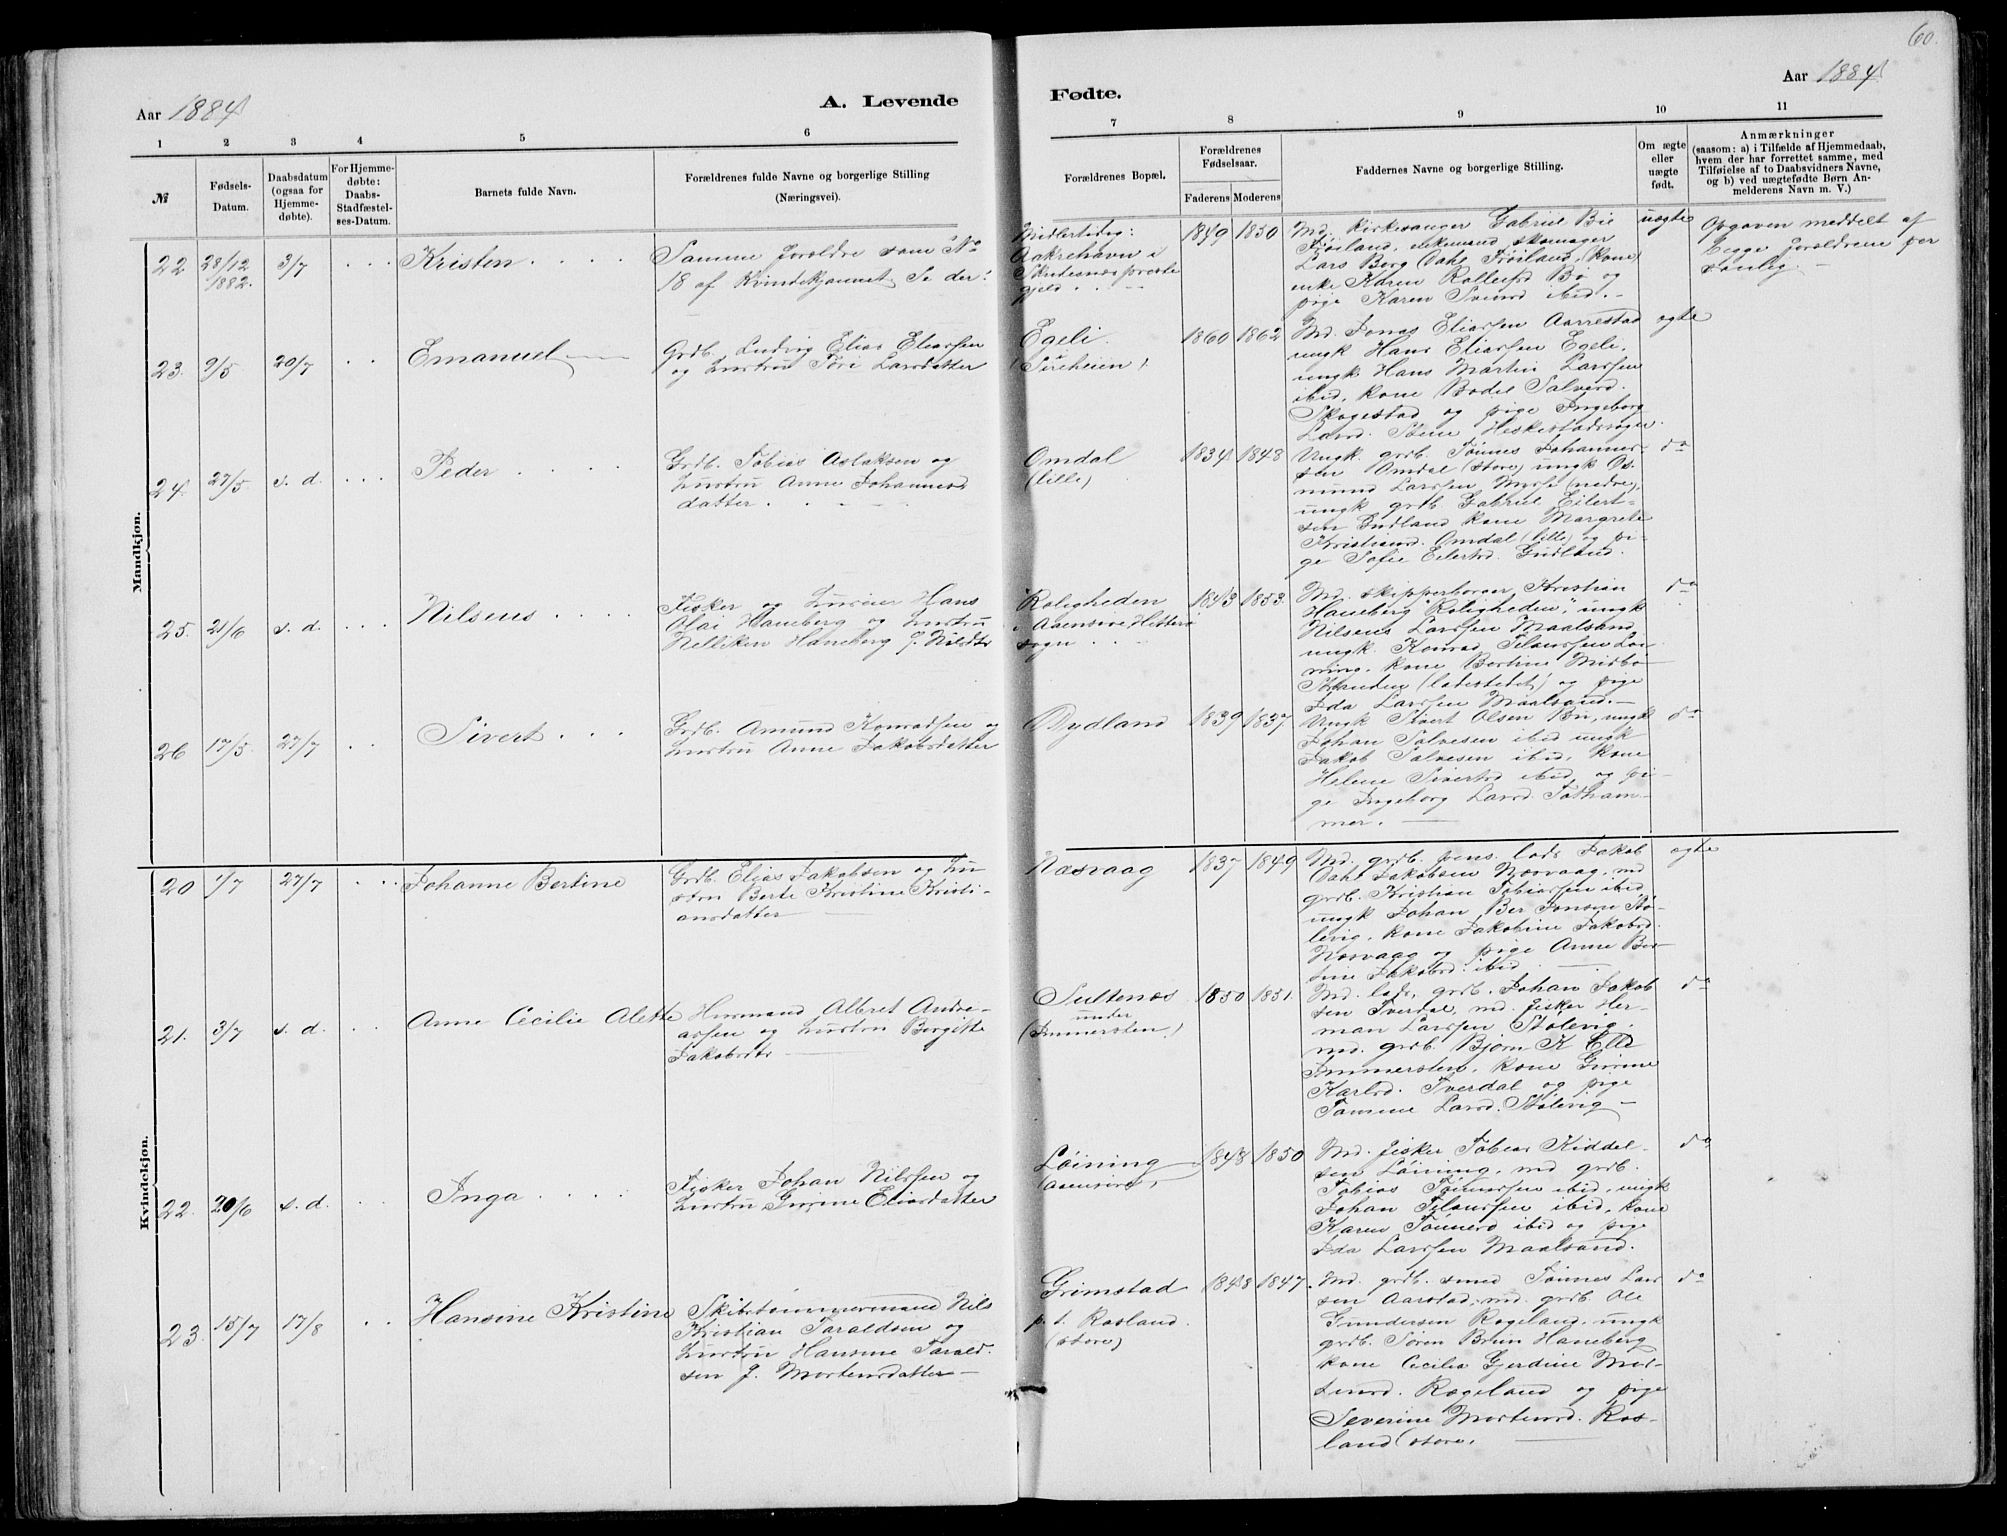 60.
Aar 1884
A. Levende
Fødte.
Aar 1884
1 2 3 4 5 6 7 8 9 10 11
№
Fødsels-
Datum.
Daabsdatum
(ogsaa for
Hjemme-
døbte).
For Hjemme-
døbte:
Daabs-
Stadfæstel-
ses-Datum.
Barnets fulde Navn.
Forældrenes fulde Navne og borgerlige Stilling
(Næringsvei).
Forældrenes Bopæl.
Forældrenes
Fødselsaar.
Faderens Moderens
Faddernes Navne og borgerlige Stilling.
Om ægte
eller
uægte
født.
Anmærkninger
(saasom: a) i Tilfælde af Hjemmedaab,
hvem der har forrettet samme, med
Tilføielse af to Daabsvidners Navne,
og b) ved uægtefødte Børn An-
melderens Navn m. V.)
Mandkjøn.
22 28/12 1882. 3/7
Kristen
Samme foreldre som No
18 af Kvindekjønnet Se der!
Midlertidig:
Aakrehavn i
Skudesnæs præste
gjeld
1849 1850
Md. kirkesanger Gabriel Bie
Frøiland, enkemand skomager
Lars Berg (Dahl Frøiland, (kone)
enke Karen Rolleifsd Bø og
pige Karen Svensd ibid.
uægte
Opgaven meddelt af
begge foreldrene per
sonlig.
23. 9/5 20/7
Emanuel
Grdb. Ludvig Elias Eliassen
og hustru Tori Larsdatter
Egeli
(Sireheien)
1860 1862
Md. Jonas Eliassen Aarrestad
ungk Hans Eliassen Egeli,
ungk Hans Martin Larssen
ibid, kone Bodil Salvesd.
Skogestad og pige Ingeborg
Larsd. Stene Heskestadsogn.
ægte
24. 27/5. s. d.
Peder
Grdb. Tobias Aslaksen og
hustru Anne Johannesd
datter
Omdal
(lille)
1834 1848
Ungk. grdb. Tønnes Johannes-
sen Omdal (store) ungk Os-
mund Larssen Mysse (nedre),
ungk grdb. Gabriel Eilert-
sen Gudland kone Margrete
Kristiansd. Omdal (lille) og pi-
ge Sofie Eilertsd. Gudland.
do
25. 21/6 s. d.
Nilsens
Fisker og husier Hans
Olai Haneberg og hustru
Nelliken Haneberg f. Nilsdtr
Roligheden
i Aaensire, Hitterø
sogn
1843 1853.
Md. skipperborger Kristian
Haneberg "Roligheden", ungk
Nilsens Larssen Maalsand,
ungk. Konrad Filanssen Løi-
ning, kone Bertine Midbø
Stranden (ladestedet) og pige
Ida Larssen Maalsand.
do
26 17/5. 27/7
Sivert
Grdb. Amund Konradsen og
hustru Anne Jakobsdatter
Dydland
1839 1837.
Ungk Sivert Olsen Bu, ungk
Johan Salvesen ibid ungk
Jakob Salvesen ibid, kone
Helene Sivertsd ibid, og pi-
ge Ingeborg Larsd. Fotham-
mer.
do
Kvindekjøn.
20 1/7 27/7
Johanne Bertine
Grdb. Elias Jakobsen og hu
stru Berte Kristine Kristi-
ansdatter
Næsvaag
1837 1849
Md. grdb. pens. lods Jakob
Dahl Jakobsen Næsvaag, md
grdb. Kristian Tobiassen ibid,
ungk Johan Ber Jonsen Stø-
levig, kone Jakobine Jakobsd.
Næsvaag og pige Anne Ber-
tine Jakobsd. ibid
ægte
21. 3/7 s. d.
Anne Cecilie Alette
Husmand Albret Andre-
assen og hustru Bergitte
Jakobsdtr
Sultenæs
under
(Immersten)
1850 1851.
Md. lods, grdb. Johan Jakob
sen Tverdal, md. fisker Her-
man Larssen Stølevig.
md. grdb. Bjørn K Elle
Immersten, kone Gurine
Karlsd. Tverdal og pige
Tomine Larsd. Stølevig
do
22. 20/6 s. d.
Inga
Fisker Johan Nilssen og
hustru Gurine Eliasdatter
Løining
(Aaensire)
1848 1850
Md. fisker Tobias Kiddel-
sen Løining, md grdb.
Tobias Tønnessen ibid, ungk
Johan Filanssen ibid, kone
Karen Tønnesd ibid og pige
Ida Larssen Maalsand.
do
23. 15/7 17/8
Hansine Kristine
Skibstømmermand Nils
Kristian Taraldsen og
hustru Hansine Tarald
sen f. Mortensdatter
Grimstad
p. t. Rosland
(store)
1848 1847.
Md. grdb. smed Tønnes Lar
sen Aarstad, md. grdb. Ole
Gundersen Rægeland, ungk
grdb. Søren Bruun Haneberg
kone Cecilia Gjerdine Mor-
tensd. Rægeland og pige
Severine Mortensd. Ros-
land (store.
do